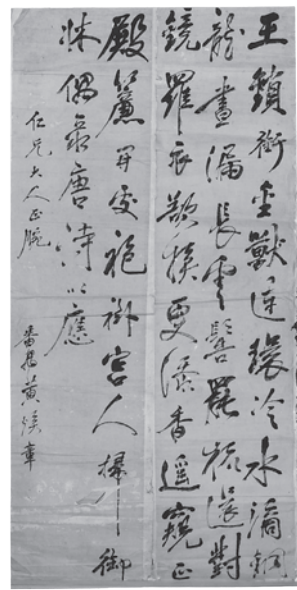 王鎖銜金獸連環冷水滴銅
龍晝漏長雲髻罷梳還對
鏡羅衣欲換更添香遥窺正
殿簾開處袍袴宮人掃御
牀偶录唐詩以應
仁兄大人正腕
番禺黃章